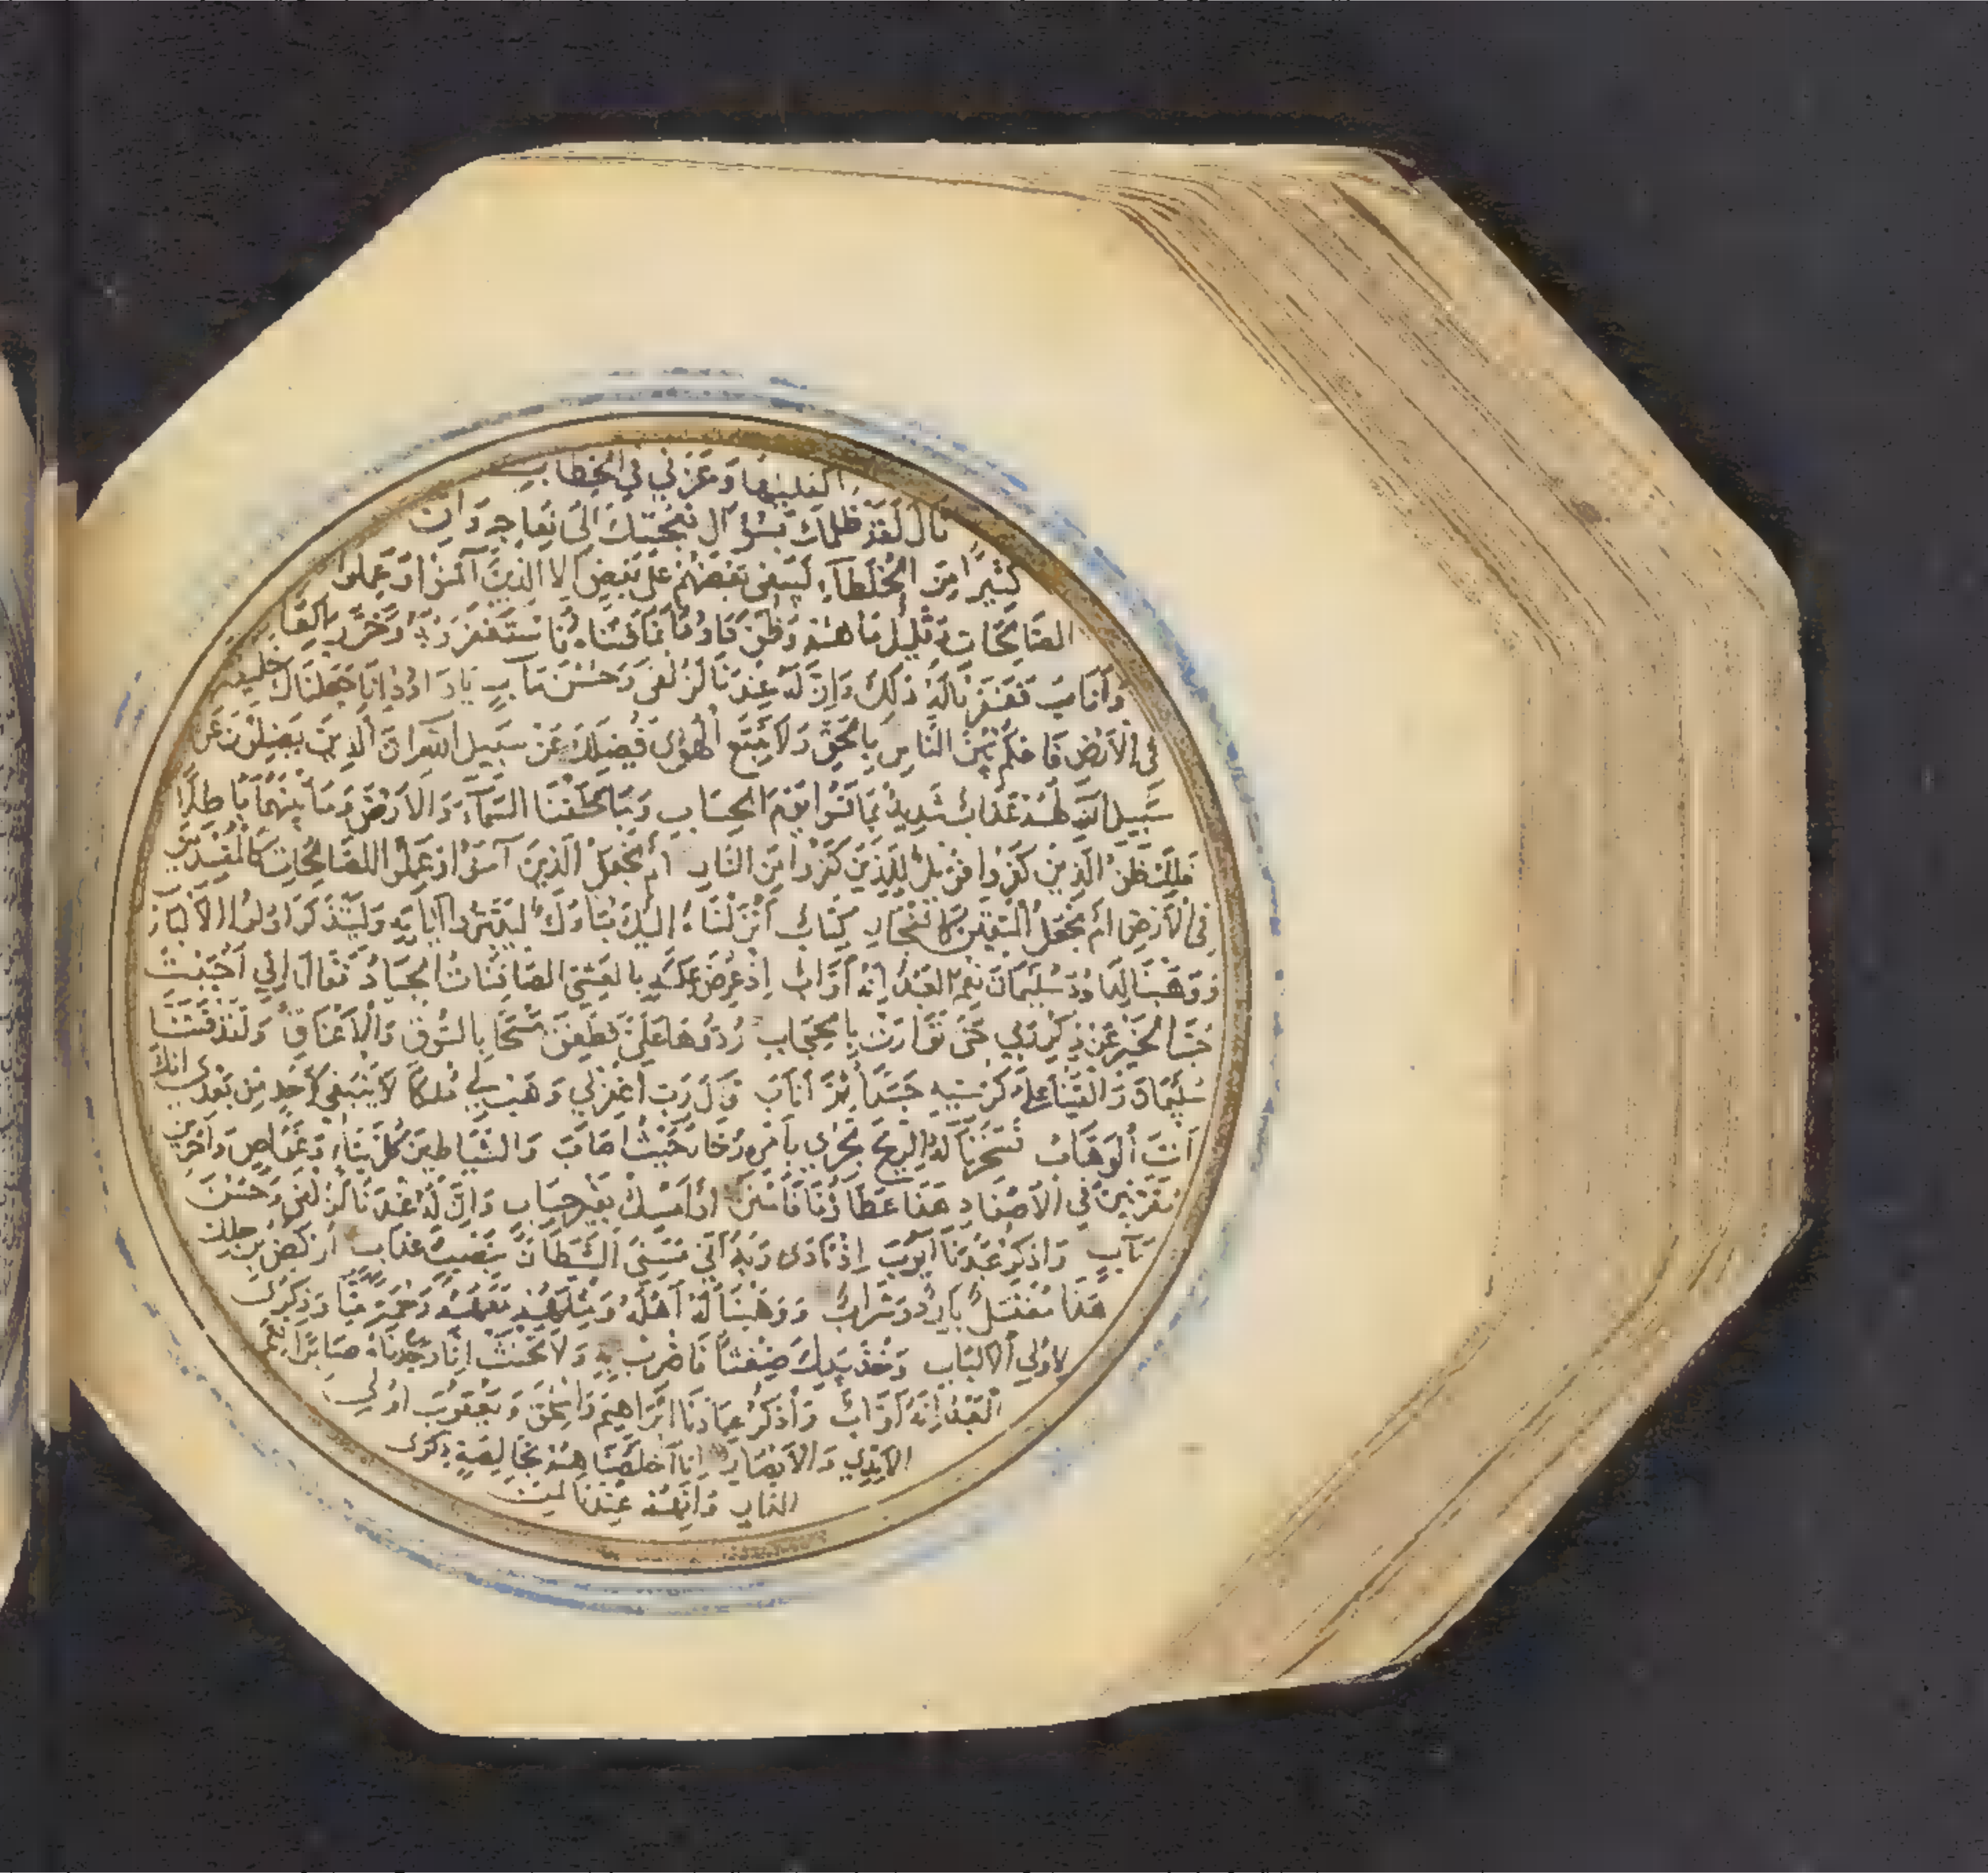 اكفلنيها وعزني في الخطاب
قال لقد ظلمك بسؤال نعجتك الى نعاجه وان
كثيرا من الخلطاء ليبغي بعضهم على بعض الا الذين آمنوا وعملوا
الصالحات وقليل ما هم وظن داود انما فتناه فاستغفر ربه وخر راكعا
وأناب فغفرنا له ذلك وان له عندنا لزلفى وحسن مآب يا داود انا جعلناك خليفة
في الارض فاحكم بين الناس بالحق ولا تتبع الهوى فيضلك عن سبيل الله ان الذين يضلون عن
سبيل الله لهم عذاب شديد بما نسوا يوم الحساب وما خلقنا السماء والارض وما بينهما باطلا
ذلك ظن الذين كفروا فويل للذين كفروا من النار ام نجعل الذين آمنوا وعملوا الصالحات كالمفسدين
في الارض ام نجعل المتقين كالفجار كتاب انزلناه اليك مبارك ليدبروا آياته وليتذكر اولوا الالباب
ووهبنا لداود سليمان نعم العبد انه أواب اذ عرض عليه بالعشي الصافنات الجياد فقال اني احببت
حب الخير عن ذكر ربي حتى توارت بالحجاب ردوها علي فطفق مسحا بالسوق والاعناق ولقد فتنا
سليمان والقينا على كرسيه جسدا ثم أناب قال رب اغفر لي وهب لي ملكا لا ينبغي لأحد من بعدي انك
انت الوهاب فسخرنا له الريح تجري بأمره رخاء حيث اصاب والشياطين كل بناء وغواص وآخرين
مقرنين في الاصفاد هذا عطاؤنا فامنن او امسك بغير حساب وان له عندنا لزلفى وحسن
مآب واذكر عبدنا ايوب اذ نادى ربه اني مسني الشيطان بنصب وعذاب اركض برجلك
هذا مغتسل بارد وشراب ووهبنا له اهله ومثلهم معهم رحمة منا وذكرى
لاولي الالباب وخذ بيدك ضغثا فاضرب به ولا تحنث انا وجدناه صابرا نعم
العبد انه أواب واذكر عبادنا ابراهيم واسحق ويعقوب اولي
الايدي والابصار انا اخلصناهم بخالصة ذكرى
الدار وانهم عندنا لمن